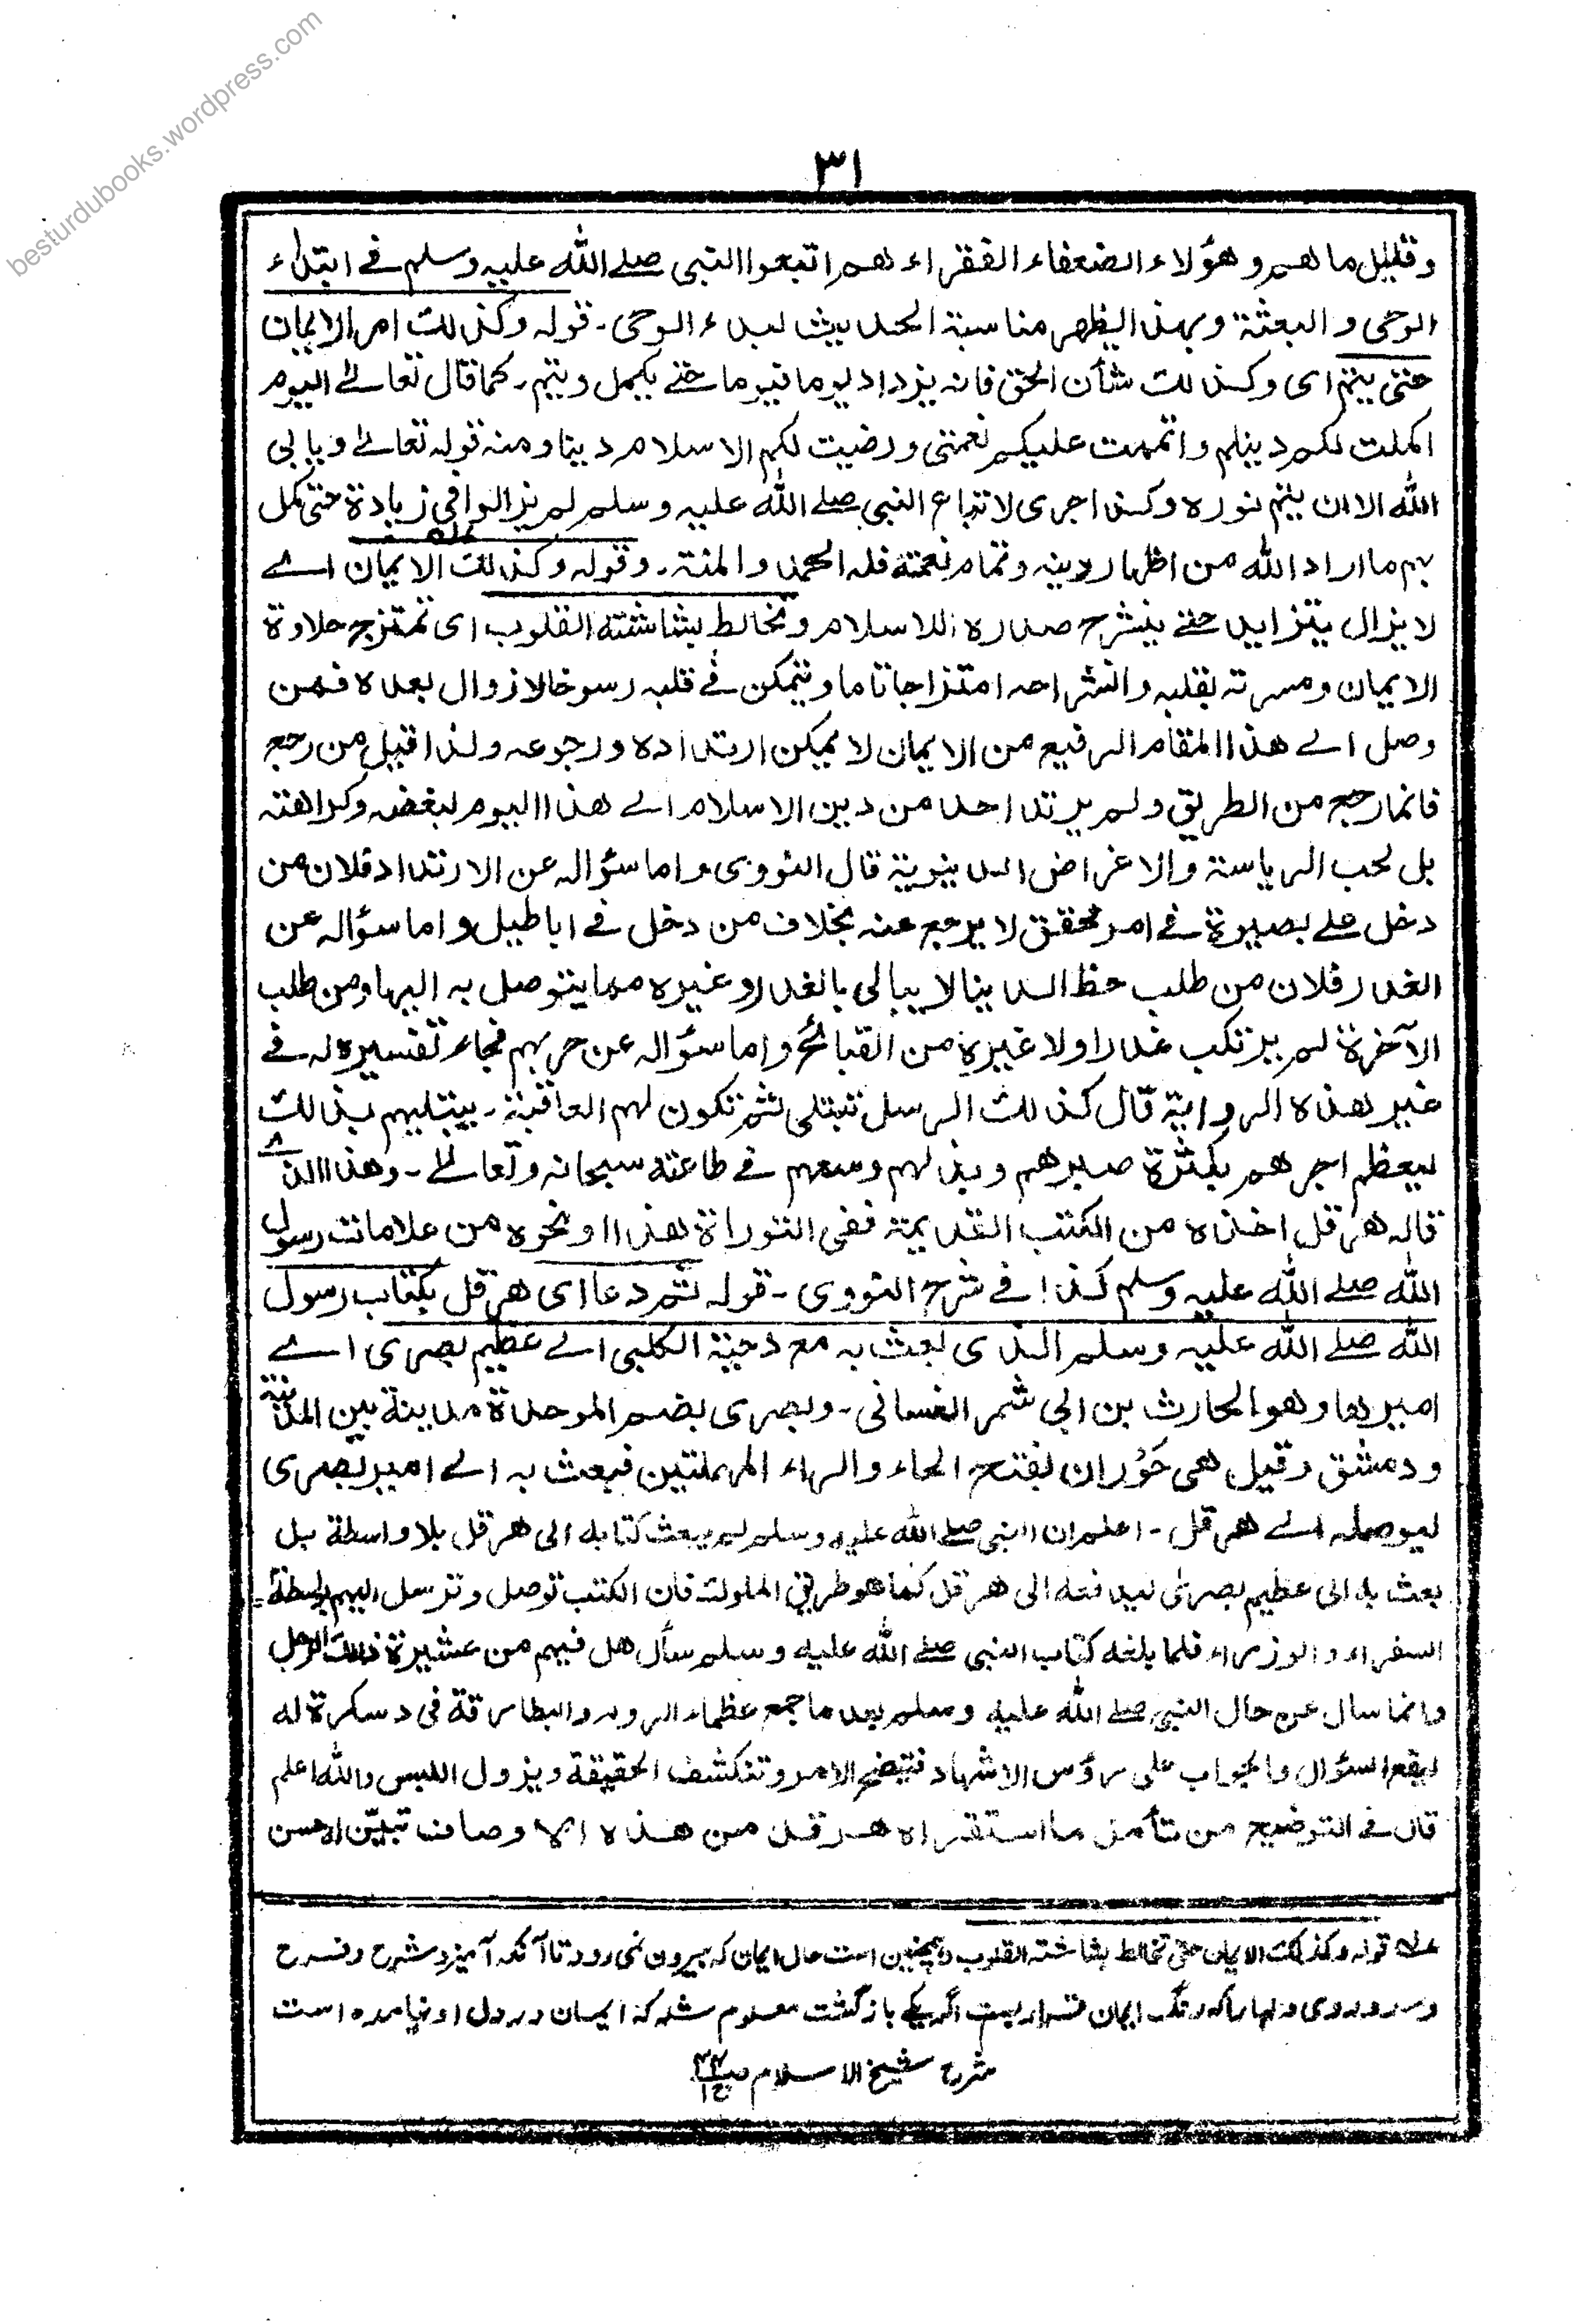 besturdubooks.wordpress.com
٣١
وقليل ما هم وهؤلاء الضعفاء الفقراء هم اتبعوا النبي صلے الله عليہ وسلم فے ابتداء
الوحي والبعثة وبهذا ايظهر مناسبة الحديث لبدء الوحي۔ قولہ وكذلك امر الايمان
حتى يتم اى وكذلك شأن الحق فانہ يزداد يوما فيوما حتے يكمل ويتم۔ كما قال تعالےٰ اليوم
اكملت لكم دينكم واتممت عليكم نعمتى ورضيت لكم الاسلام دينا ومنہ قولہ تعالےٰ ويابى
الله الا ان يتم نوره وكذا جرى لاتباع النبي صلے الله عليہ وسلم لم يزالوا فى زيادة حتى كمل
بهم ما اراد الله من اظهار دينہ وتمام نعمتہ فلہ الحمد والمنة۔ وقولہ وكذلك الايمان اے
لا يزال يتزايد حتے ينشرح صدره للاسلام وتخالط بشاشتہ القلوب اى تمتزج حلاوة
الايمان ومسرتہ بقلبہ وانشراحہ امتزاجا تاما ويتمكن فے قلبہ رسوخا لا زوال بعده فمن
وصل الے هذا المقام الرفيع من الايمان لا يمكن ارتداده ورجوعہ ولذا قيل من رجع
فانما رجع من الطريق ولم يرتد احد من دين الاسلام الے هذا اليوم لبغضہ وكراهتہ
بل لحب الرياسة والاغراض الدينوية قال النووى واما سؤالہ عن الارتداد فلان من
دخل علے بصيرة فے امر محقق لا يرجع عنہ بخلاف من دخل فے اباطيل واما سؤالہ عن
الغدر فلان من طلب حظ الدينا لا يبالى بالغدر وغيره مما يتوصل بہ اليها ومن طلب
الآخرة لم يرتكب غدرا ولا غيره من القبائح واما سؤالہ عن حربهم فجاء تفسيره لہ فے
غير هذه الرواية قال كذلك الرسل تبتلى ثم تكون لهم العاقبة۔ يبتليهم بذلك
ليعظم اجرهم بكثرة صبرهم وبذلهم وسعهم فے طاعتہ سبحانہ وتعالےٰ۔ وهذا الذى
قالہ هرقل اخذه من الكتب القديمة ففى التوراة هذا او نحوه من علامات رسول
الله صلے الله عليہ وسلم كذا فے شرح النووى۔ قولہ ثم دعا اى هرقل بكتاب رسول
الله صلے الله عليہ وسلم الذى بعث بہ مع دحية الكلبى الے عظيم بصرى اے
اميرها وهو الحارث بن ابى شمر الغسانى۔ وبصرى بضم الموحدة مدينة بين المدينة
ودمشق وقيل هى حَوْران بفتح الحاء والراء المهملتين فبعث بہ الے امير بصرى
ليوصلہ الے هرقل۔ اعلم ان النبى صلے الله عليه وسلم لم يبعث كتابه الى هرقل بلا واسطة بل
بعث به الى عظيم بصرىٰ ليدفعه الى هرقل كما هو طريق الملوك فان الكتب توصل وترسل اليهم بواسطة
السفراء والوزراء فلما بلغه كتاب النبى صلے الله عليه وسلم سأل هل فيهم من عشيرة ذلك الرجل
وانما سال عن حال النبى صلے الله عليه وسلم بعد ما جمع عظماء الروم والبطارقة فى دسكرة له
ليقع السؤال والجواب على رؤس الاشهاد فيتضح الامر وتنكشف الحقيقة ويزول اللبس والله اعلم
قال فے التوضيح من تأمل ما استقراه هرقل من هذه الاوصاف تبيّن له حسن
عله قولہ وكذلك الايمان حتى تخالط بشاشتہ القلوب وہمچنين است حال ايمان كہ بيرون نمى رود تا آنكہ آميزد شرح وفرح
وسرور وى دلہا را كہ رنگ ايمان قرار يست اگر يكے بازگشت معلوم شد كہ ايمان در دل او نيامده است
شرح شيخ الاسلام ص٣٣ ج١